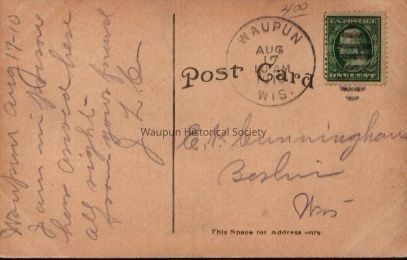 4.00
WAUPUN
AUG
17
AM
WIS.
U.S. POSTAGE
ONE CENT
Post Card
Waupun Aug 17-10
I am
here
all right -
from your friend
Waupun Historical Society
Cunningham
Berlin
Wis
This Space for Address only.